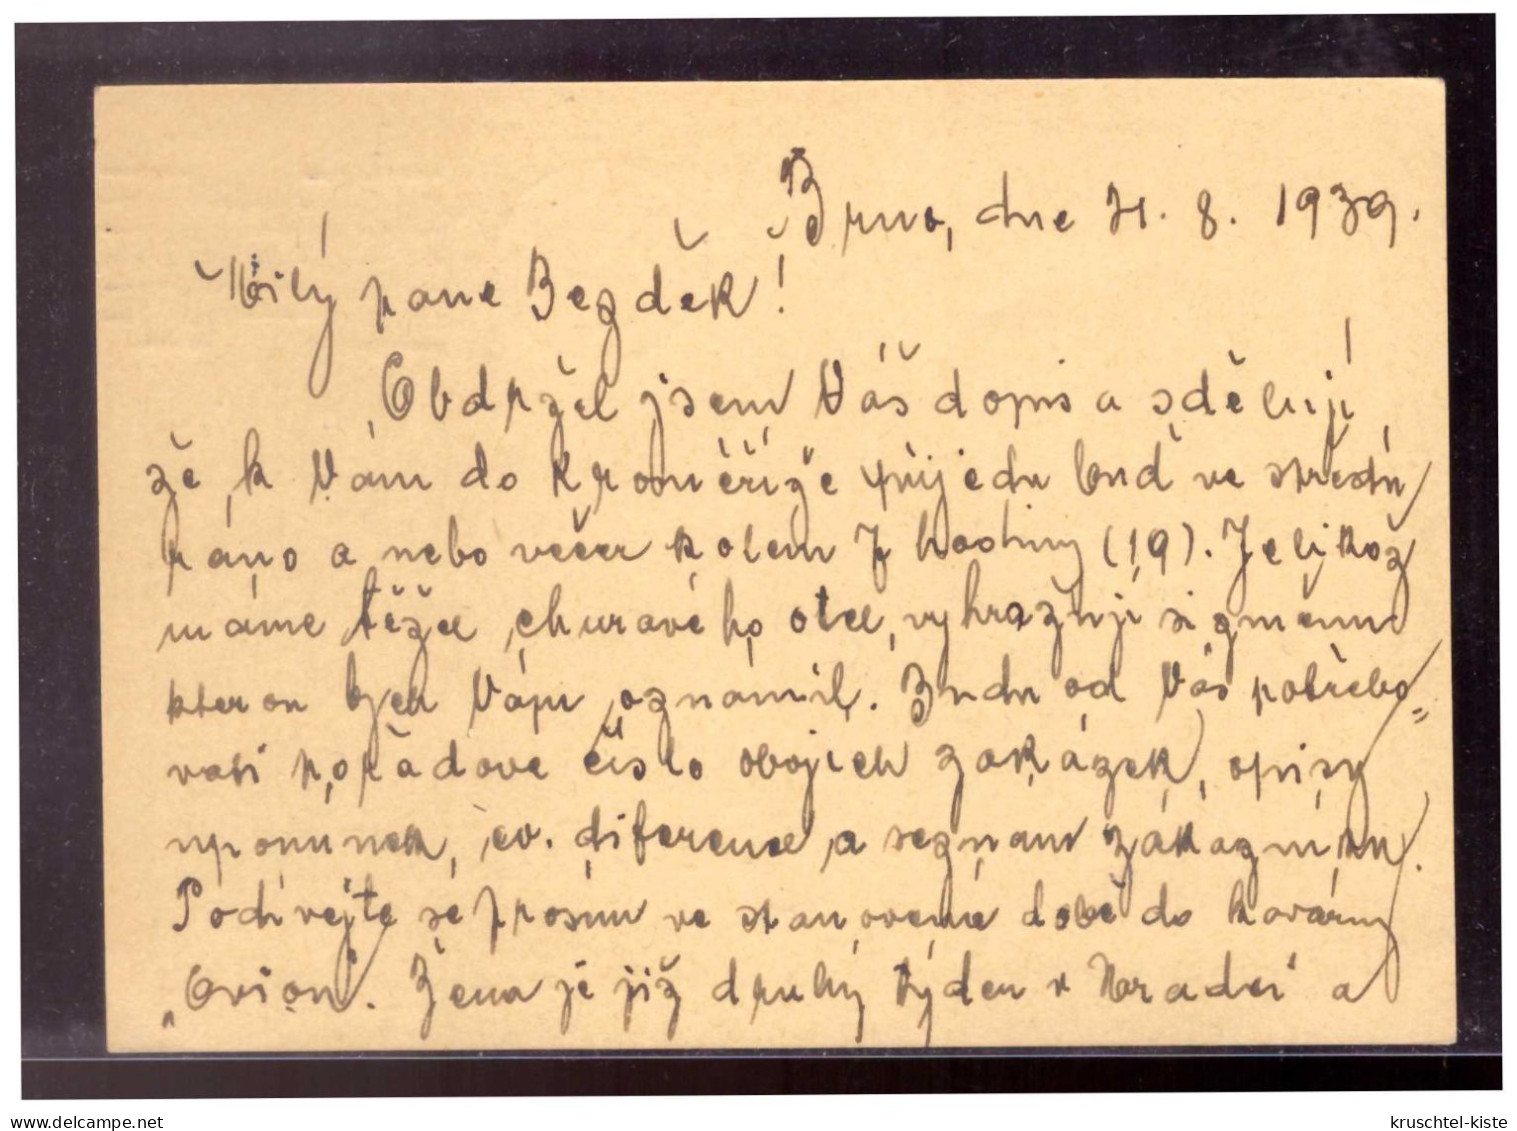 Brno, dne 21. 8. 1939.
Milý pane Bezděk!
Obdržel jsem Váš dopis a sděluji
že k Vám do Kroměříže přijedu buď ve středu
ráno a nebo večer kolem 7 hodiny (19). Jelikož
máme těžce churavého otce, vyhrazuji si změnu
kterou bych Vám oznámil. Budu od Vás potřebo„
vati pořadové číslo obojích zakázek, opisy
upomínek, ev. diference a seznam zákazníků.
Podívejte se prosím ve stanovené době do kavárny
„Orion". Žena je již druhý týden v Hradci a
delcampe.net
kruschtel-kiste